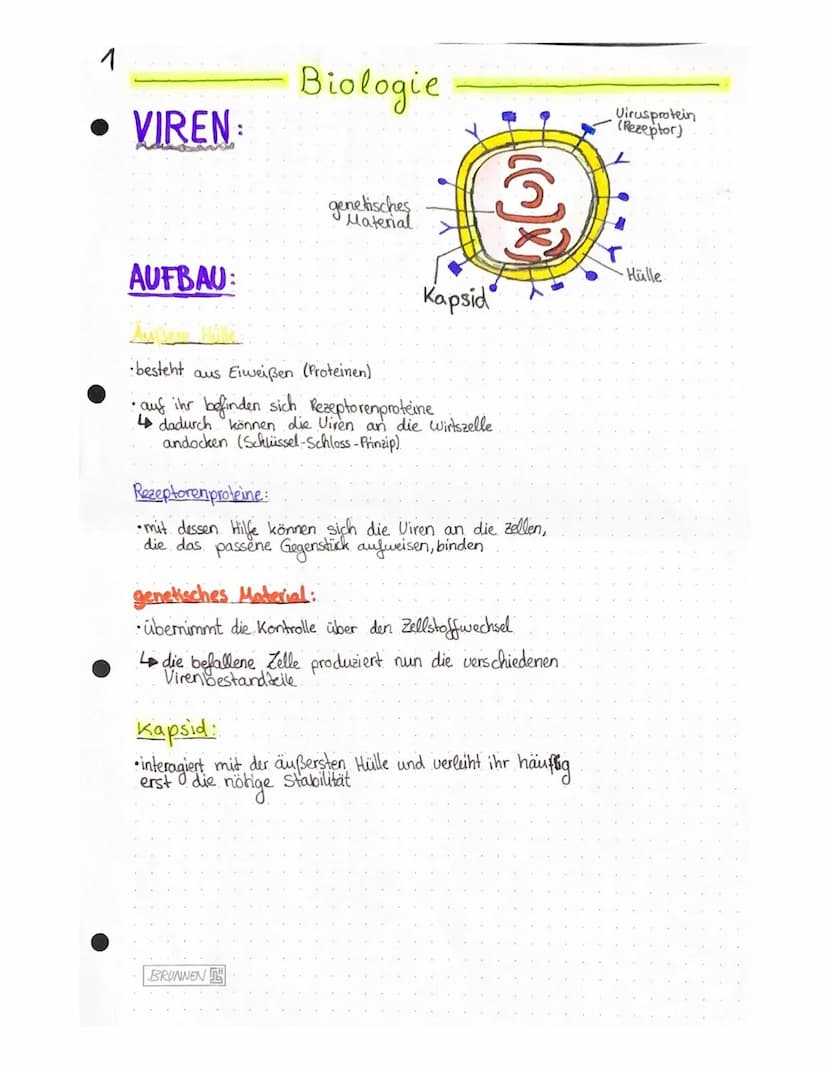 1
Biologie
VIREN:
Virusprotein
(Rezeptor)
genetisches
Material
Hülle
Kapsid
AUFBAU:
Äußere Hülle
·besteht aus Eiweißen (Proteinen)
·auf ihr befinden sich Rezeptorenproteine
↳ dadurch können die Viren an die Wirtszelle
andocken (Schlüssel-Schloss-Prinzip)
Rezeptorenproteine:
·mit dessen Hilfe können sich die Viren an die zellen,
die das passene Gegenstück aufweisen, binden
genetisches Material:
·übernimmt die Kontrolle über den Zellstoffwechsel
↳ die befallene Zelle produziert nun die verschiedenen
Virenbestandteile
Kapsid:
·interagiert mit der äußersten Hülle und verleiht ihr häufig
erst die nötige Stabilität
BRUNNEN